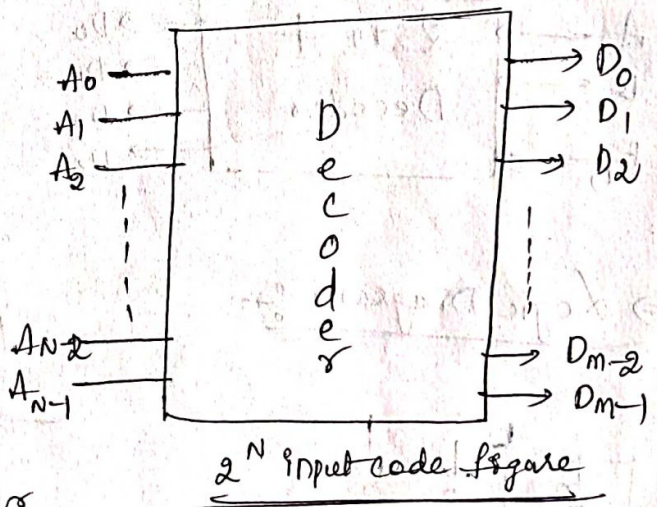 A0
A1
A2
AN-2
AN-1
Decoder
D0
D1
D2
Dm-2
Dm-1
2^N input code figare